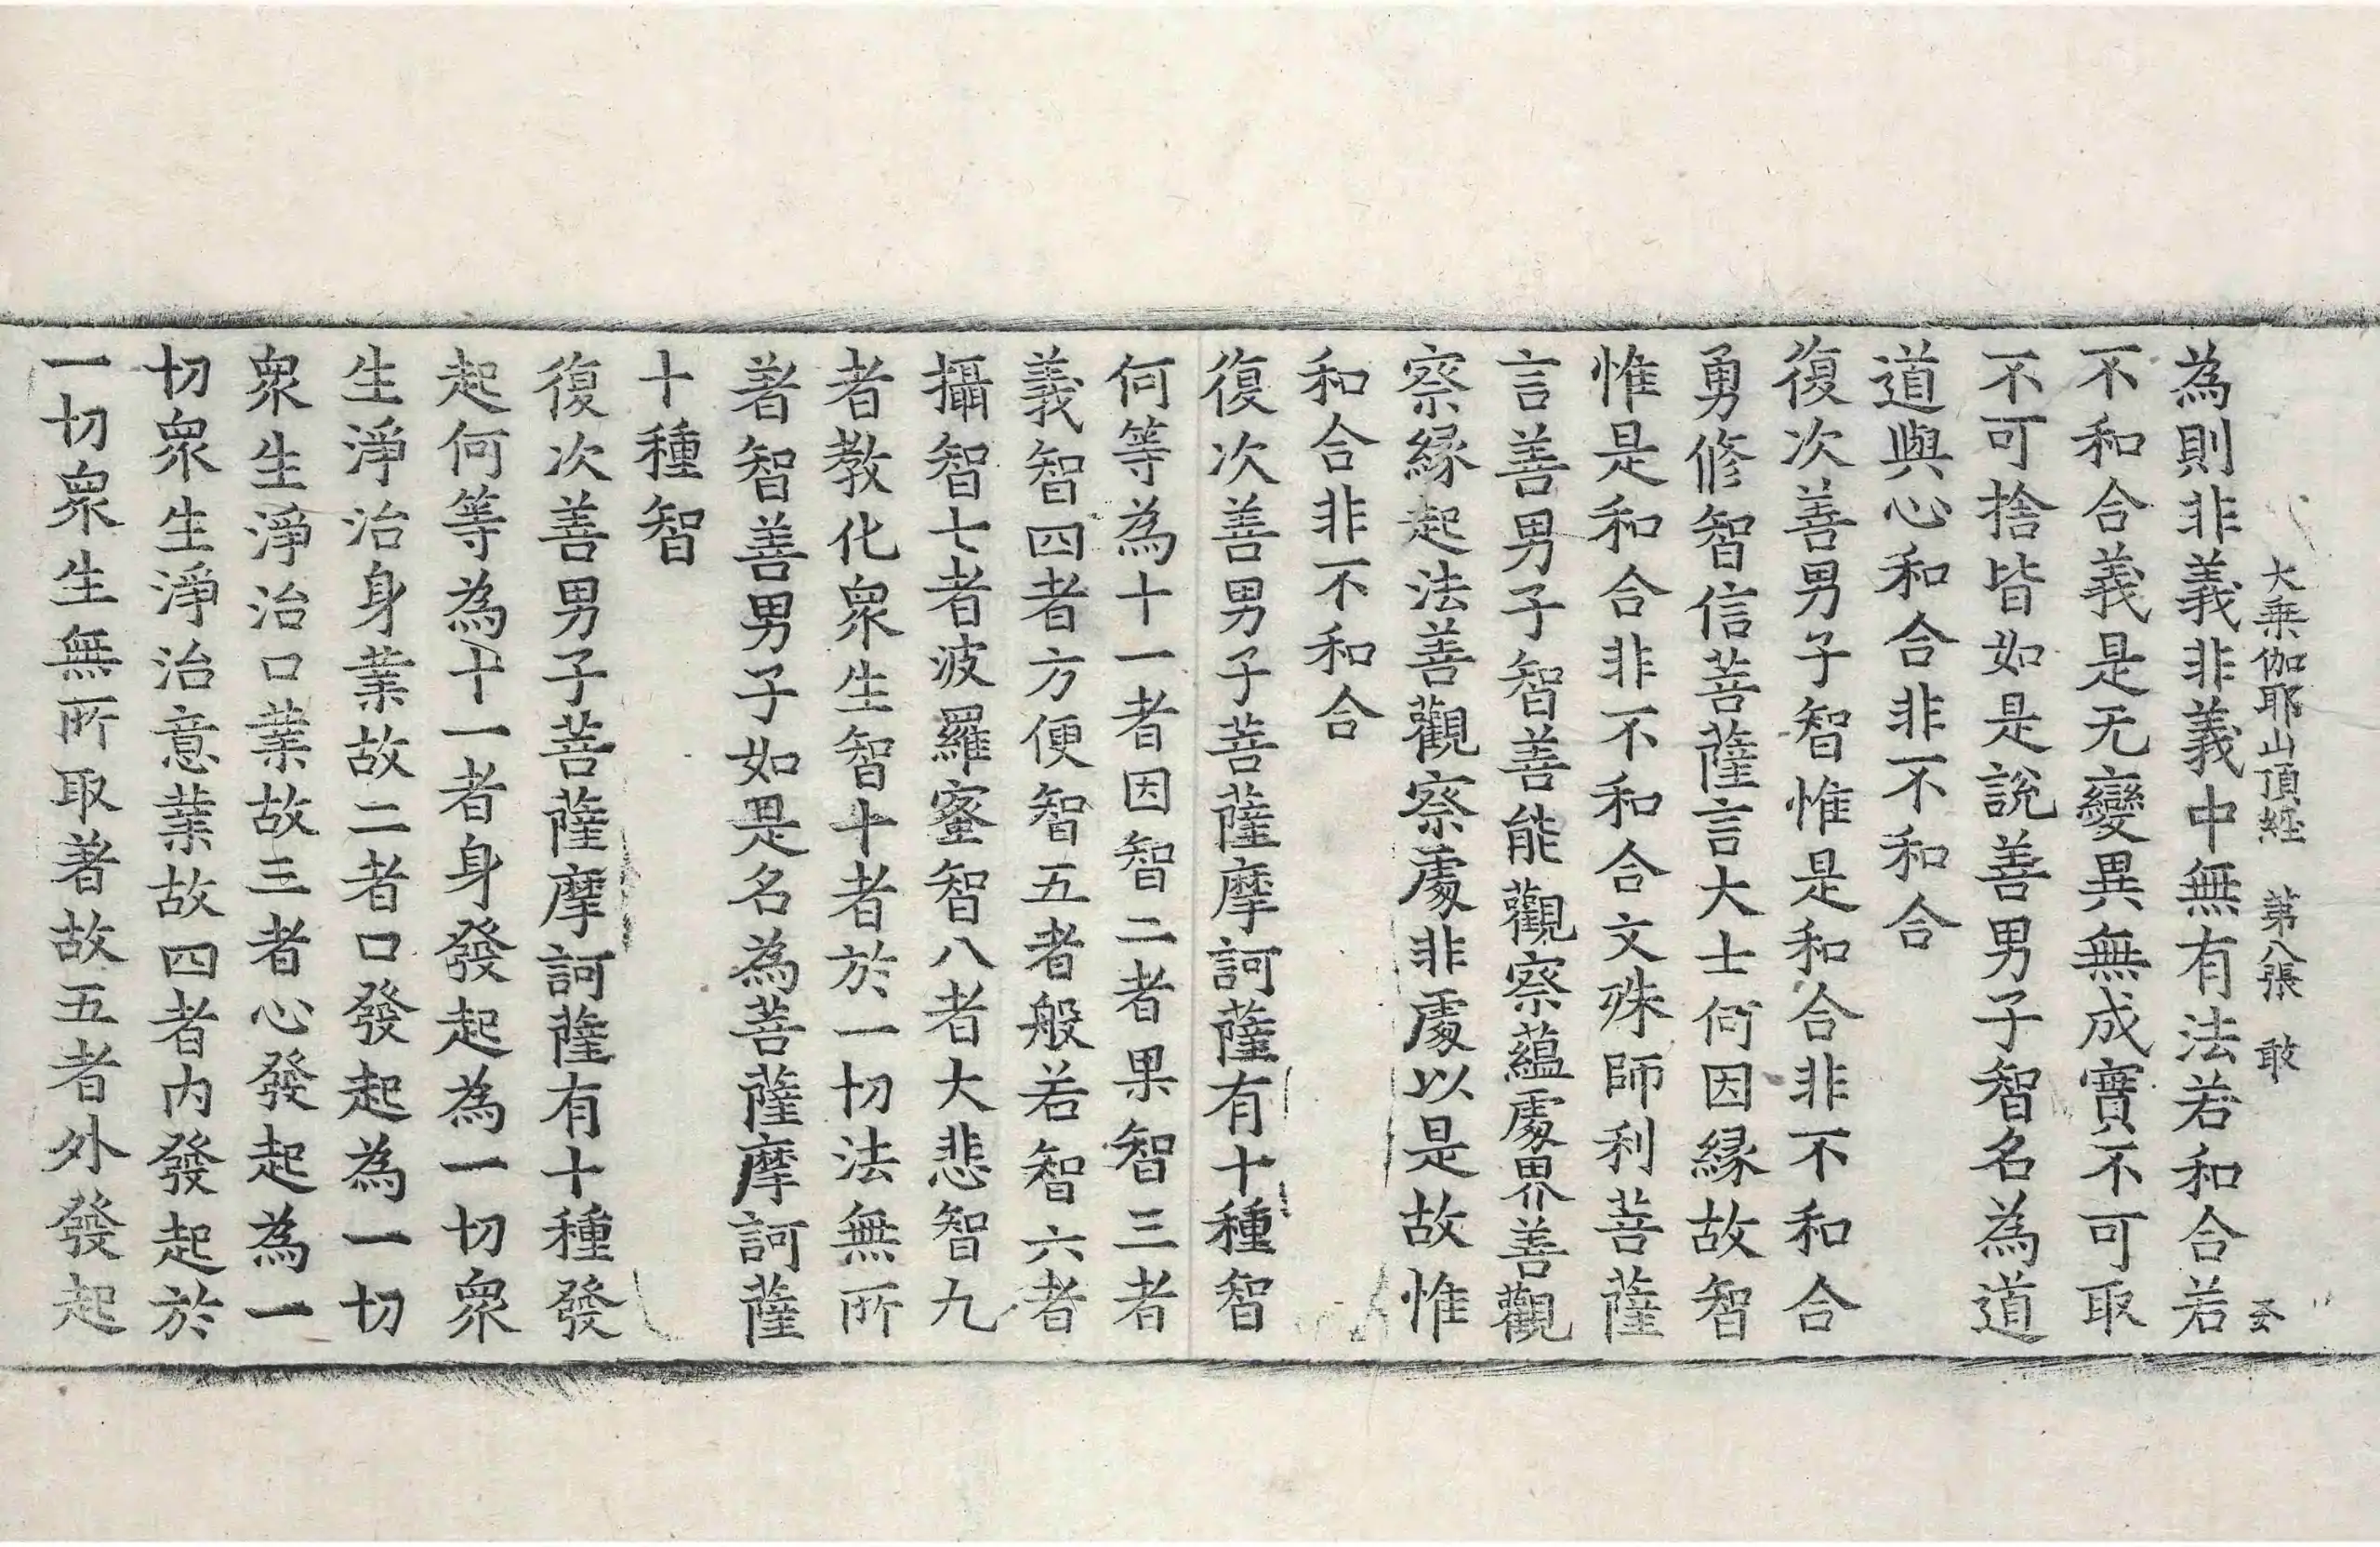 大乗伽耶山頂経 第八張 敢
為則非義非義中無有法若和合若
不和合義是无變異無成實不可取
不可捨皆如是說善男子智名為道
道與心和合非不和合
復次善男子智惟是和合非不和合
勇修智信菩薩言大士何因縁故智
惟是和合非不和合文殊師利菩薩
言善男子智善能觀察蘊處界善觀
察縁起法善觀察處非處以是故惟
和合非不和合
復次善男子菩薩摩訶薩有十種智
何等為十一者因智二者果智三者
義智四者方便智五者般若智六者
攝智七者波羅蜜智八者大悲智九
者教化衆生智十者於一切法無所
著智善男子如是名為菩薩摩訶薩
十種智
復次善男子菩薩摩訶薩有十種發
起何等為十一者身發起為一切衆
生淨治身業故二者口發起為一切
衆生淨治口業故三者心發起為一
切衆生淨治意業故四者内發起於
一切衆生無所取著故五者外發起